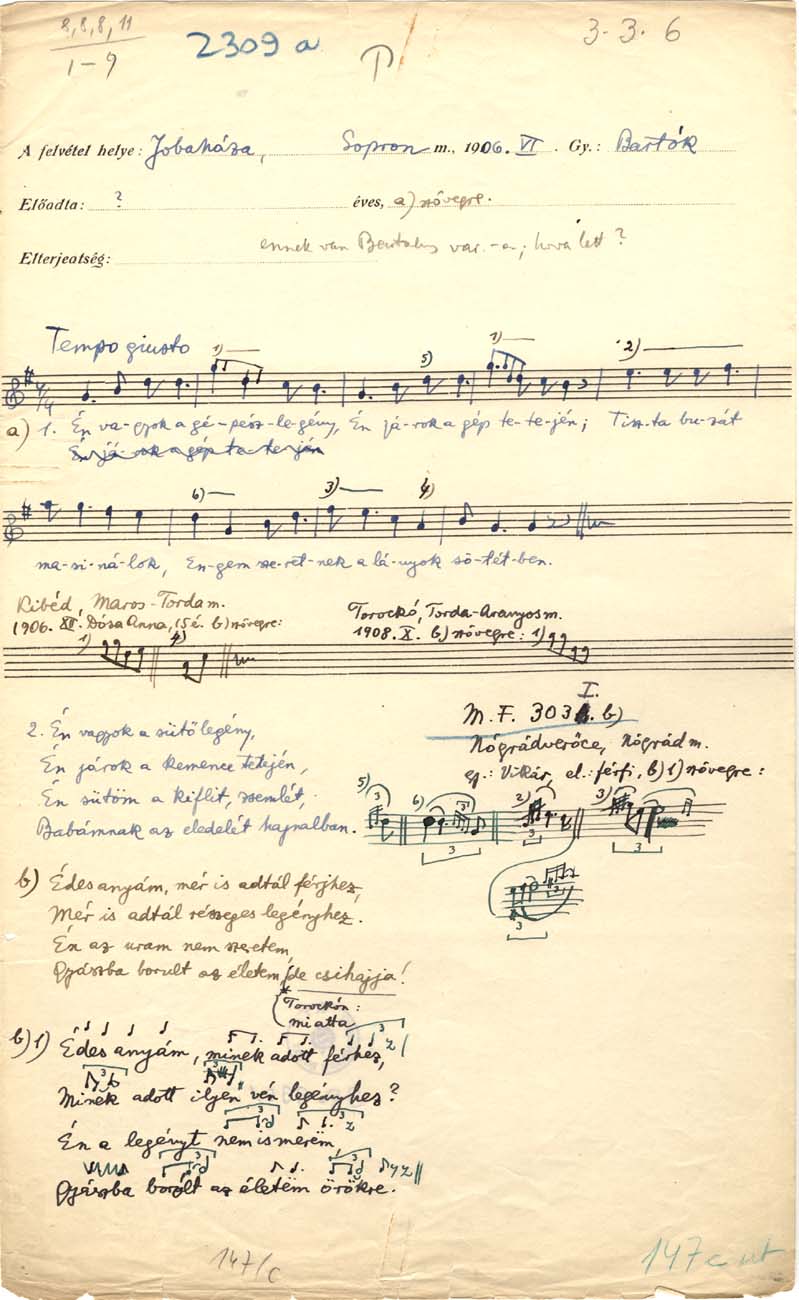 8, 8, 8, 11
1-9
2309 a
3-3. 6
A felvétel helye: Jobaháza, Sopron m., 1906. VI. Gy.: Bartók
Előadta: ? éves, a) szövegre.
Elterjedtség: ennek van Bartalus var.-a; hova lett?
Tempo giusto
1) 5) 1) 2)
a) 1. Én va-gyok a gé-pész-le-gény, Én já-rok a gép te-te-jén; Tisz-ta bu-zát
Én já-rok a gép te-te-jén
6) 3) 4)
ma-si-ná-lok, En-gem sze-ret-nek a lá-nyok sö-tét-ben.
Kibéd, Maros-Torda m.
1906. XII. Dósa Anna, 15 é. b) szövegre:
1) 4)
Torockó, Torda-Aranyos m.
1908. X. b) szövegre: 1)
2. Én vagyok a sütő legény,
Én járok a kemence tetején,
Én sütöm a kiflit, zsemlét,
Babámnak az eledelét hajnalban.
I.
M. F. 303. b)
Nógrádverőce, Nógrád m.
gy.: Vikár, el.: férfi, b) 1) szövegre:
5) 6) 2) 3)
3 3 3 3 3
b) Édes anyám, mér is adtál férjhez,
Mér is adtál részeges legényhez.
Én az uram nem szeretem,
Gyászba borult az életem, de csihajja!
* Torockón:
miatta
b) 1) Édes anyám, minek adott férhez,
Minek adott ilyen vén legényhez?
Én a legényt nem ismerëm,
Gyászba borúlt az életëm örökre.
147/c
147 c